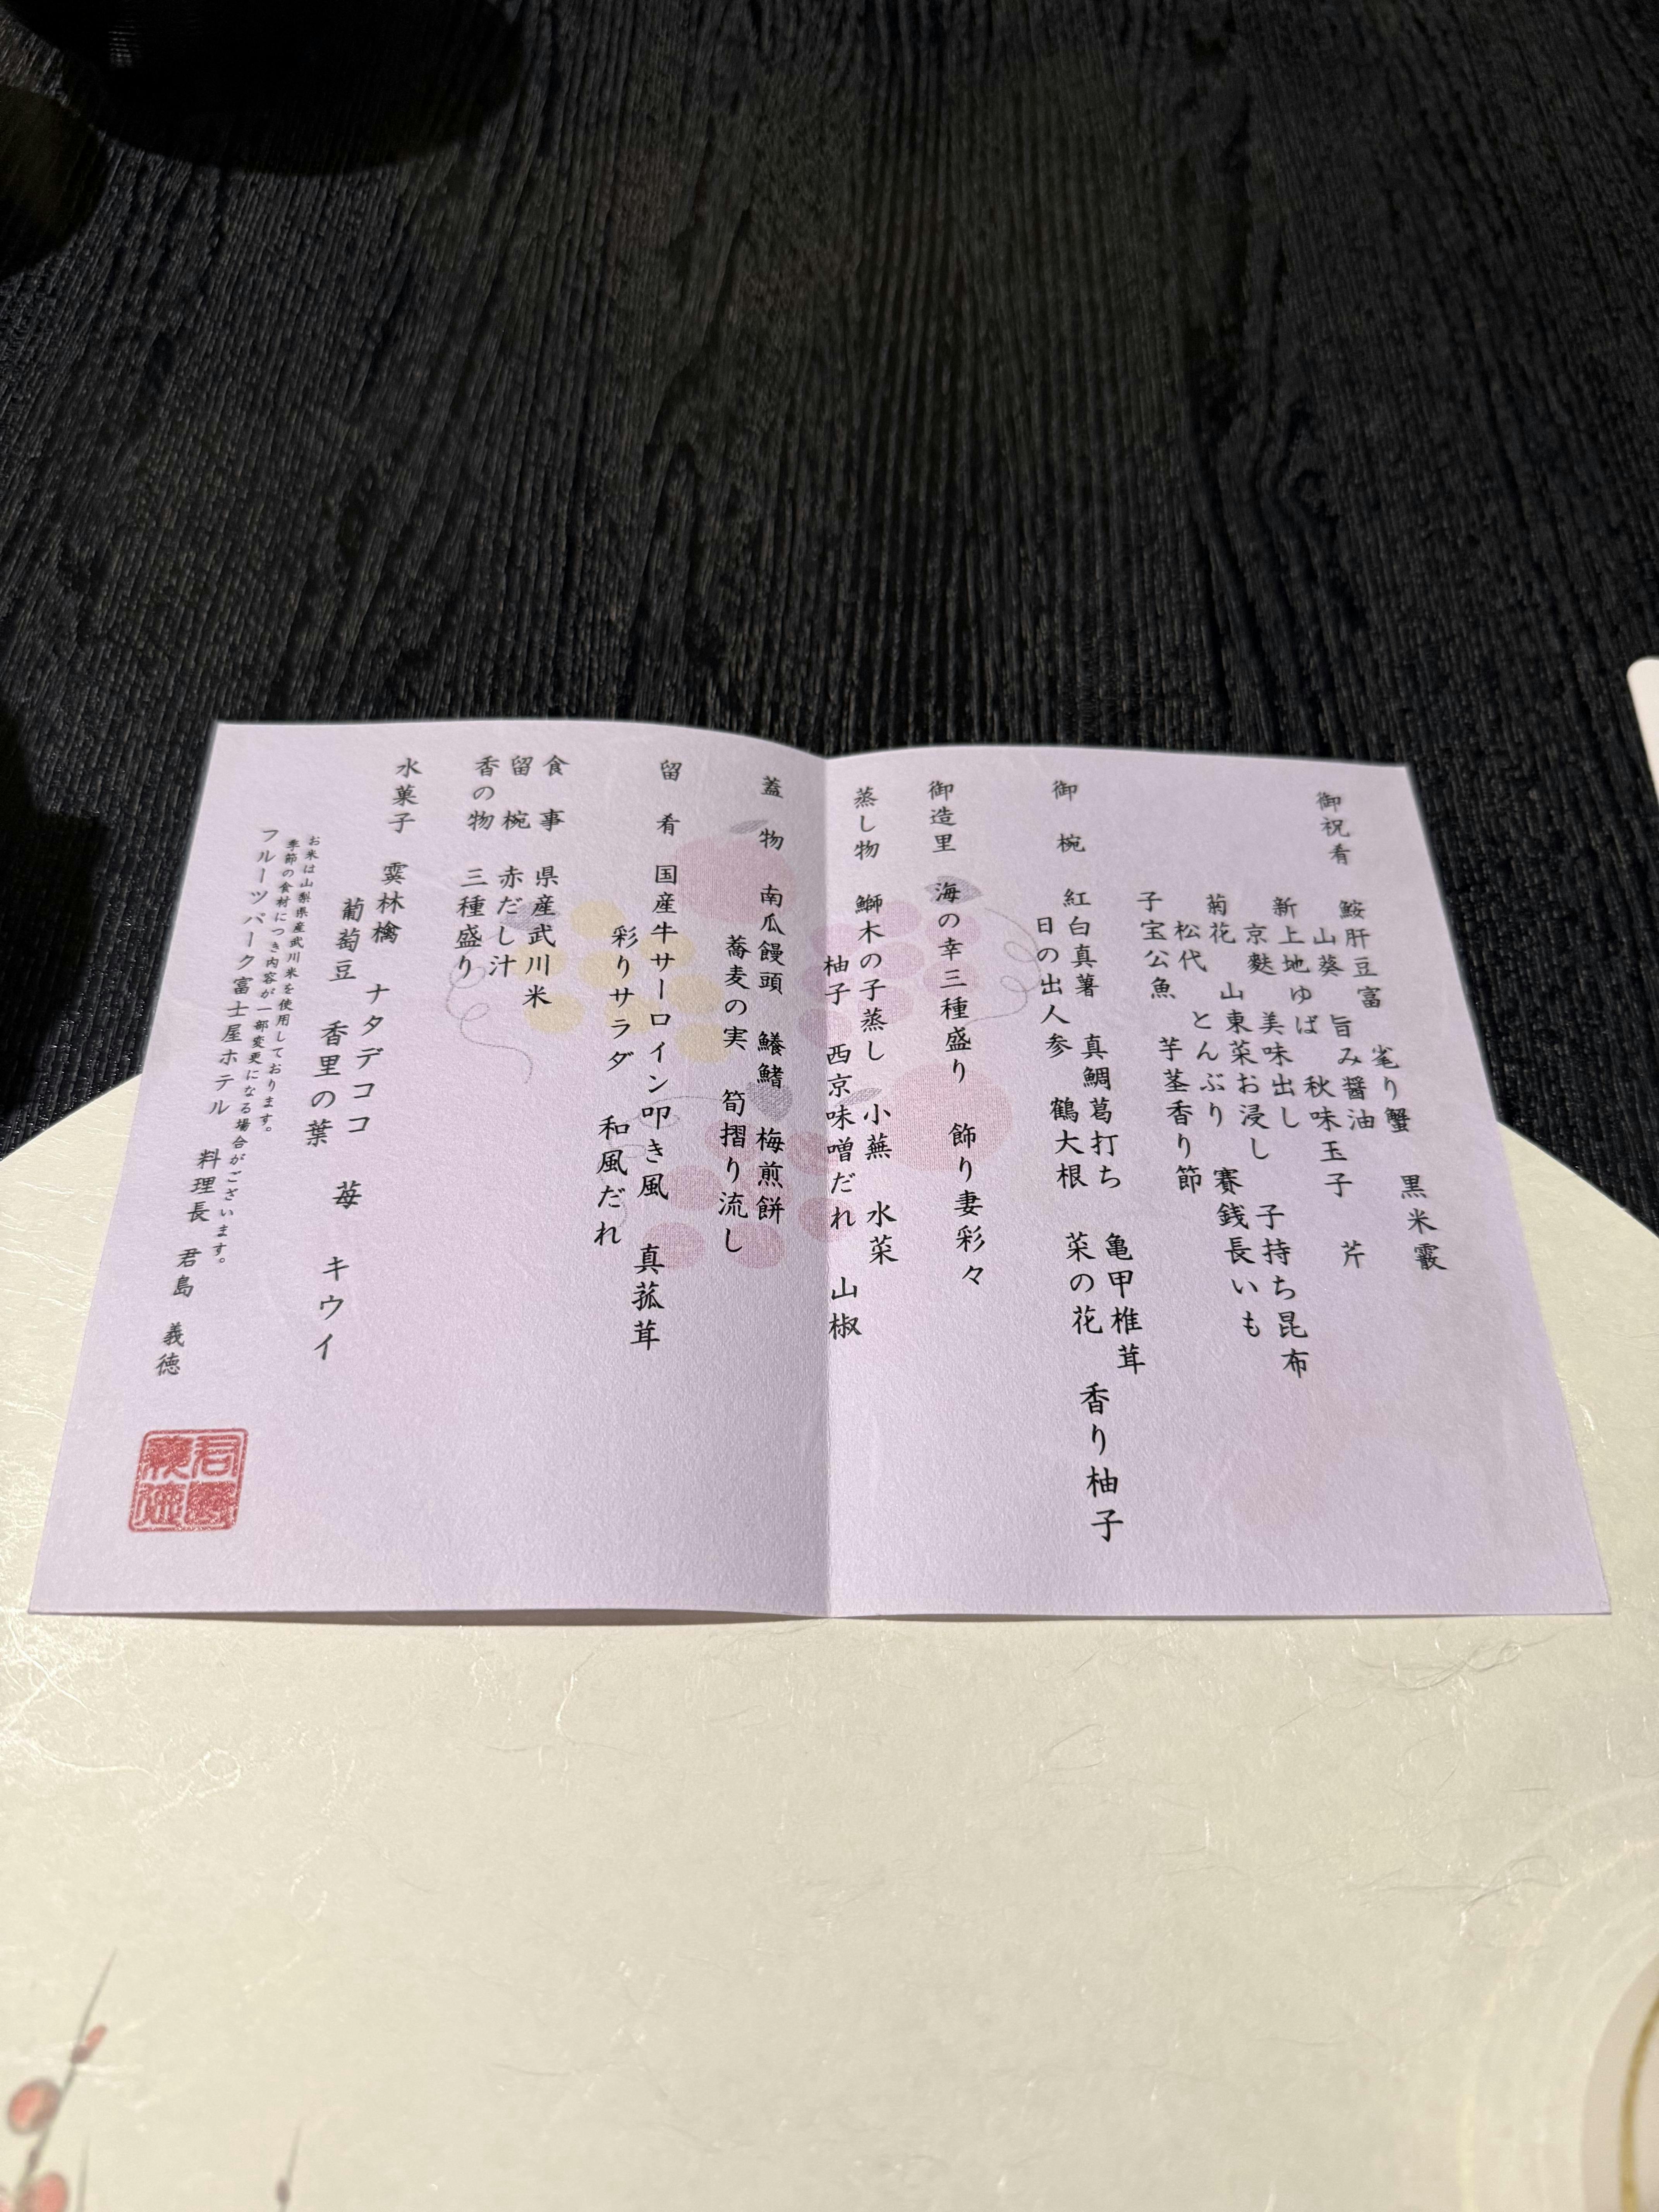 御祝肴
鮟肝豆富 毟り蟹 黒米霰
山葵 旨み醤油 芹
新上地ゆば 秋味玉子
京麩 美味出し 子持ち昆布
菊花 山東菜お浸し 賽銭長いも
松代 とんぶり
子宝公魚 芋茎香り節
御椀
紅白真薯 真鯛葛打ち 亀甲椎茸 香り柚子
日の出人参 鶴大根 菜の花
御造里 海の幸三種盛り 飾り妻彩々
蒸し物 鰤木の子蒸し 小蕪 水菜
柚子 西京味噌だれ 山椒
蓋物 南瓜饅頭 鱶鰭 梅煎餅
蕎麦の実 筍摺り流し
留肴 国産牛サーロイン叩き風 真菰茸
彩りサラダ 和風だれ
食事 県産武川米
留椀 赤だし汁
香の物 三種盛り
水菓子 霙林檎 ナタデココ 苺 キウイ
葡萄豆 香里の葉
お米は山梨県産武川米を使用しております。
季節の食材につき内容が一部変更になる場合がございます。
フルーツパーク富士屋ホテル 料理長 君島 義徳
君島
義徳